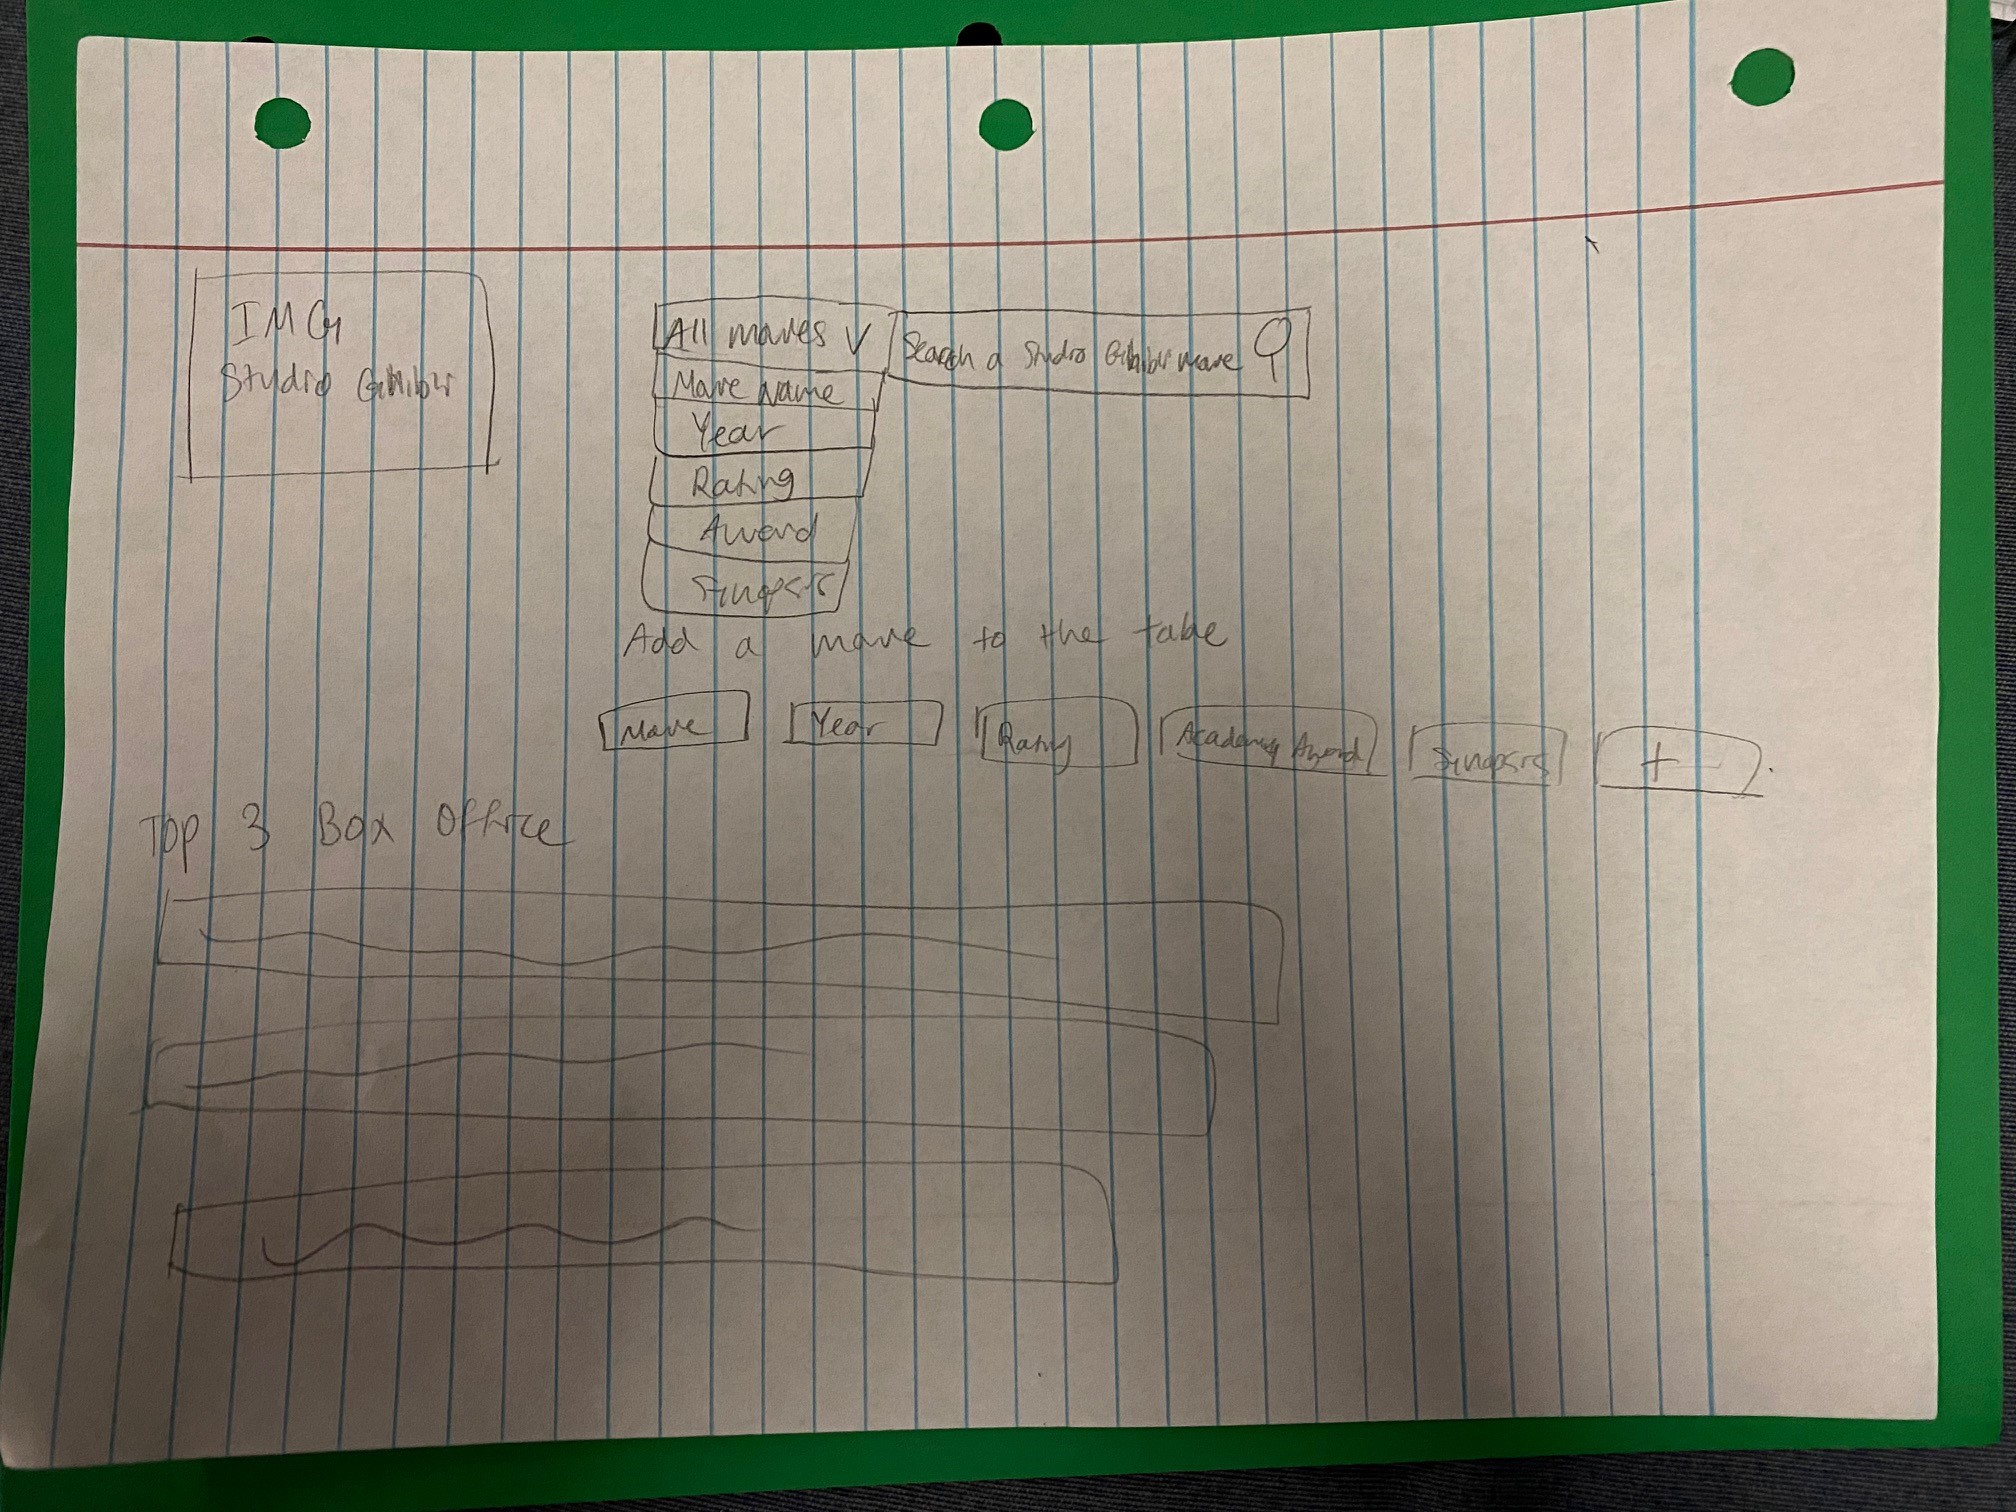 IMG
Studio Ghibli
All movies V
Search a Studio Ghibli movie
Movie Name
Year
Rating
Award
Sinopsis
Add a movie to the table
Movie
Year
Rating
Academy Award
Sinopsis
+
Top 3 Box Office